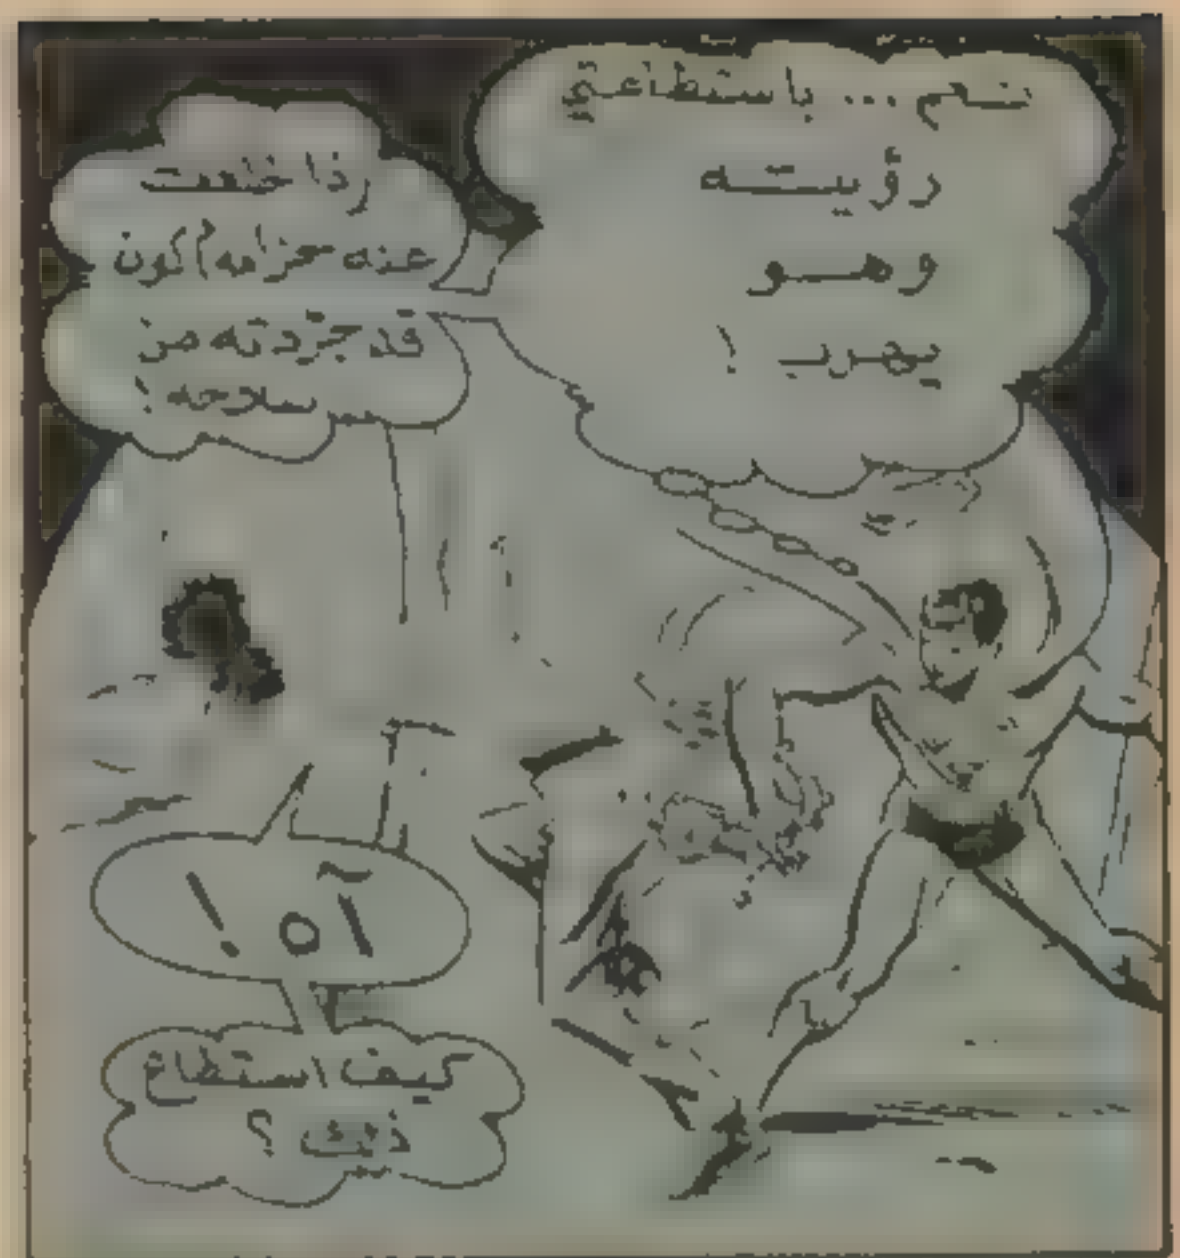 نعم ... باستطاعتي
رؤيته
وهو
يهرب !
إذا خلعت
عنه حزامه أكون
قد جردته من
سلاحه !
آه !
كيف استطاع
ذلك ؟